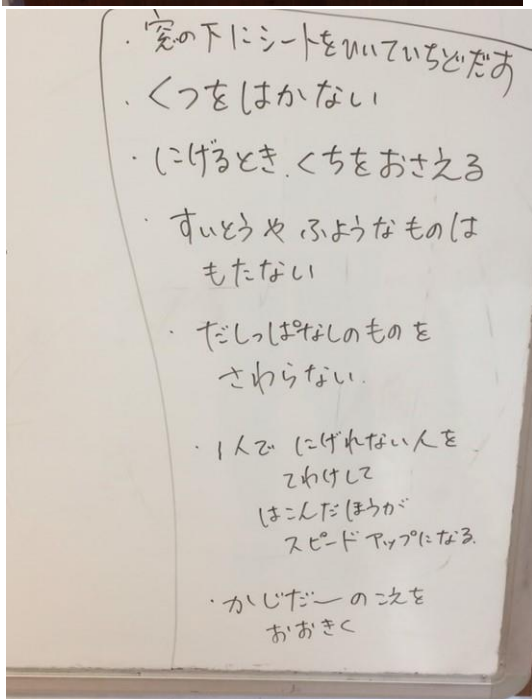 ・窓の下にシートをひいていちどだす
・くつをはかない
・にげるとき、くちをおさえる
・すいとうや ふようなものは
もたない
・だしっぱなしのものを
さわらない。
・1人で にげれない人を
てわけして
はこんだほうが
スピードアップになる。
・かじだーのこえを
おおきく